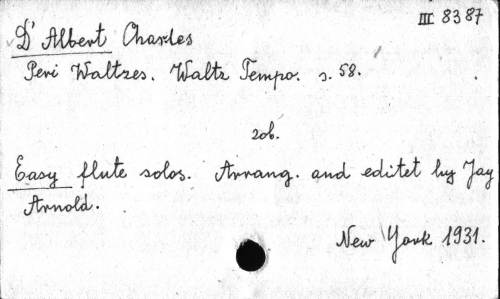 III 8387
D' Albert Charles
Peri Waltzes. Waltz Tempo. s. 58.
zob.
Easy flute solos. Arrang. and editet by Jay
Arnold.
New York 1931.